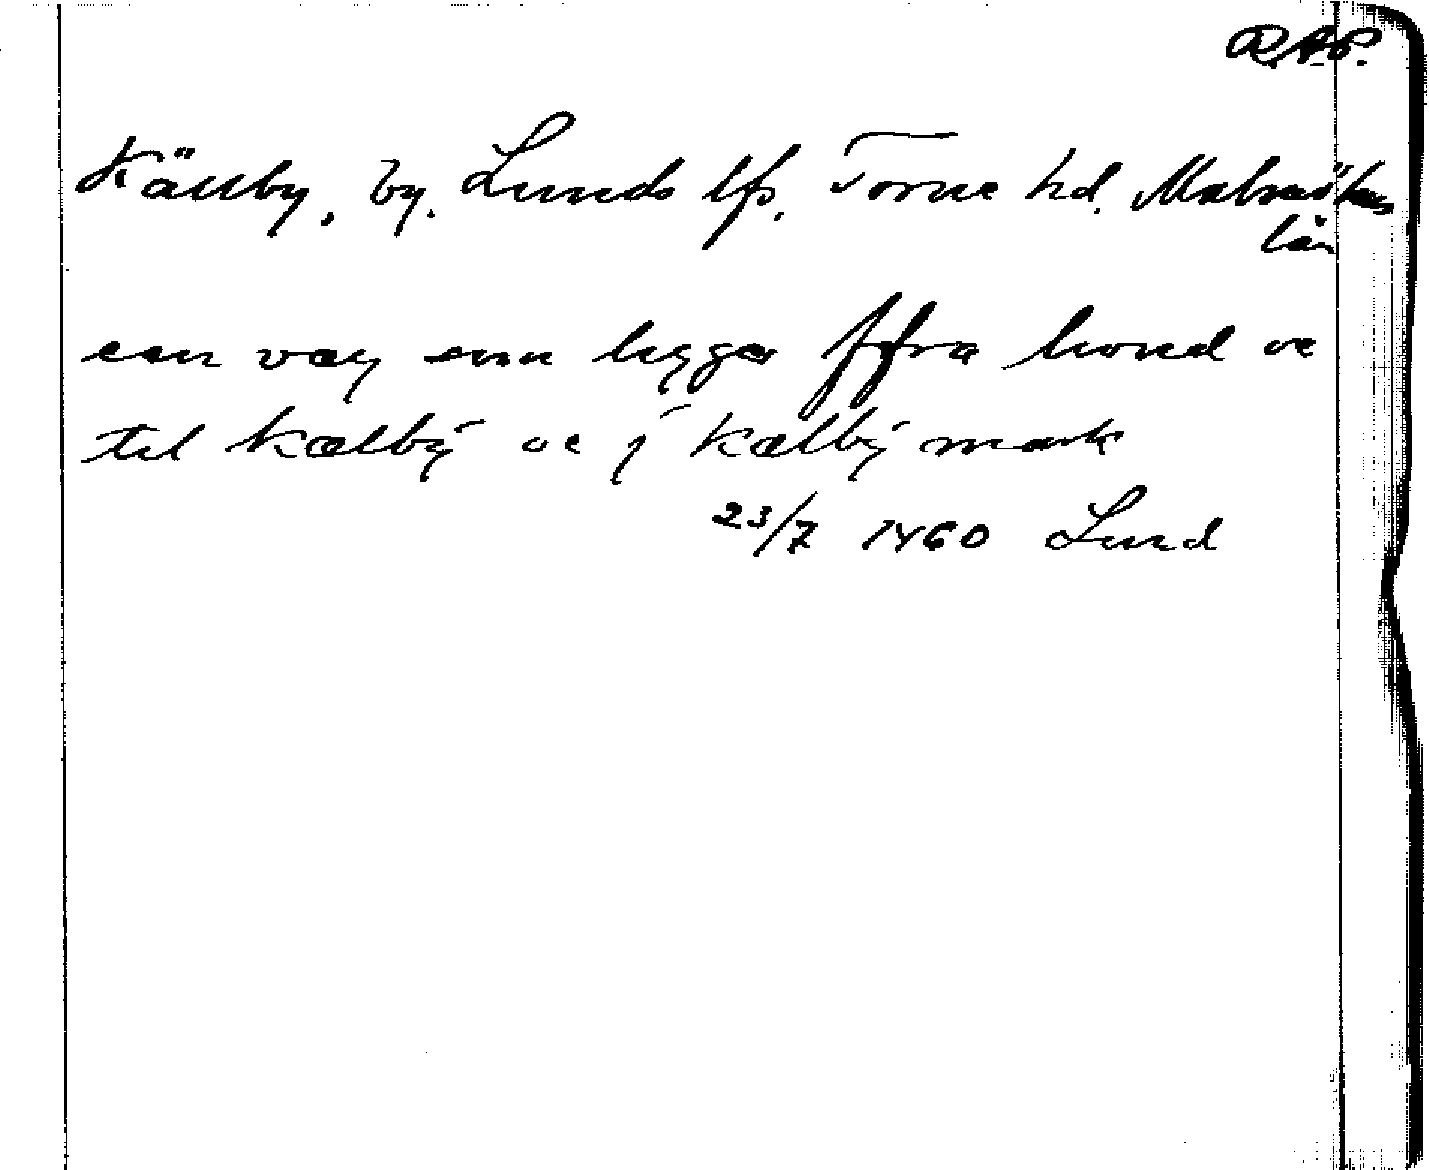 RAP.
Källby, by. Lunds lfs. Torne hd. Malmöhus
län
een væy som lygger ffra lwnd oc
til kælbÿ oc j kælbÿ mark
23/7 1460 Lund